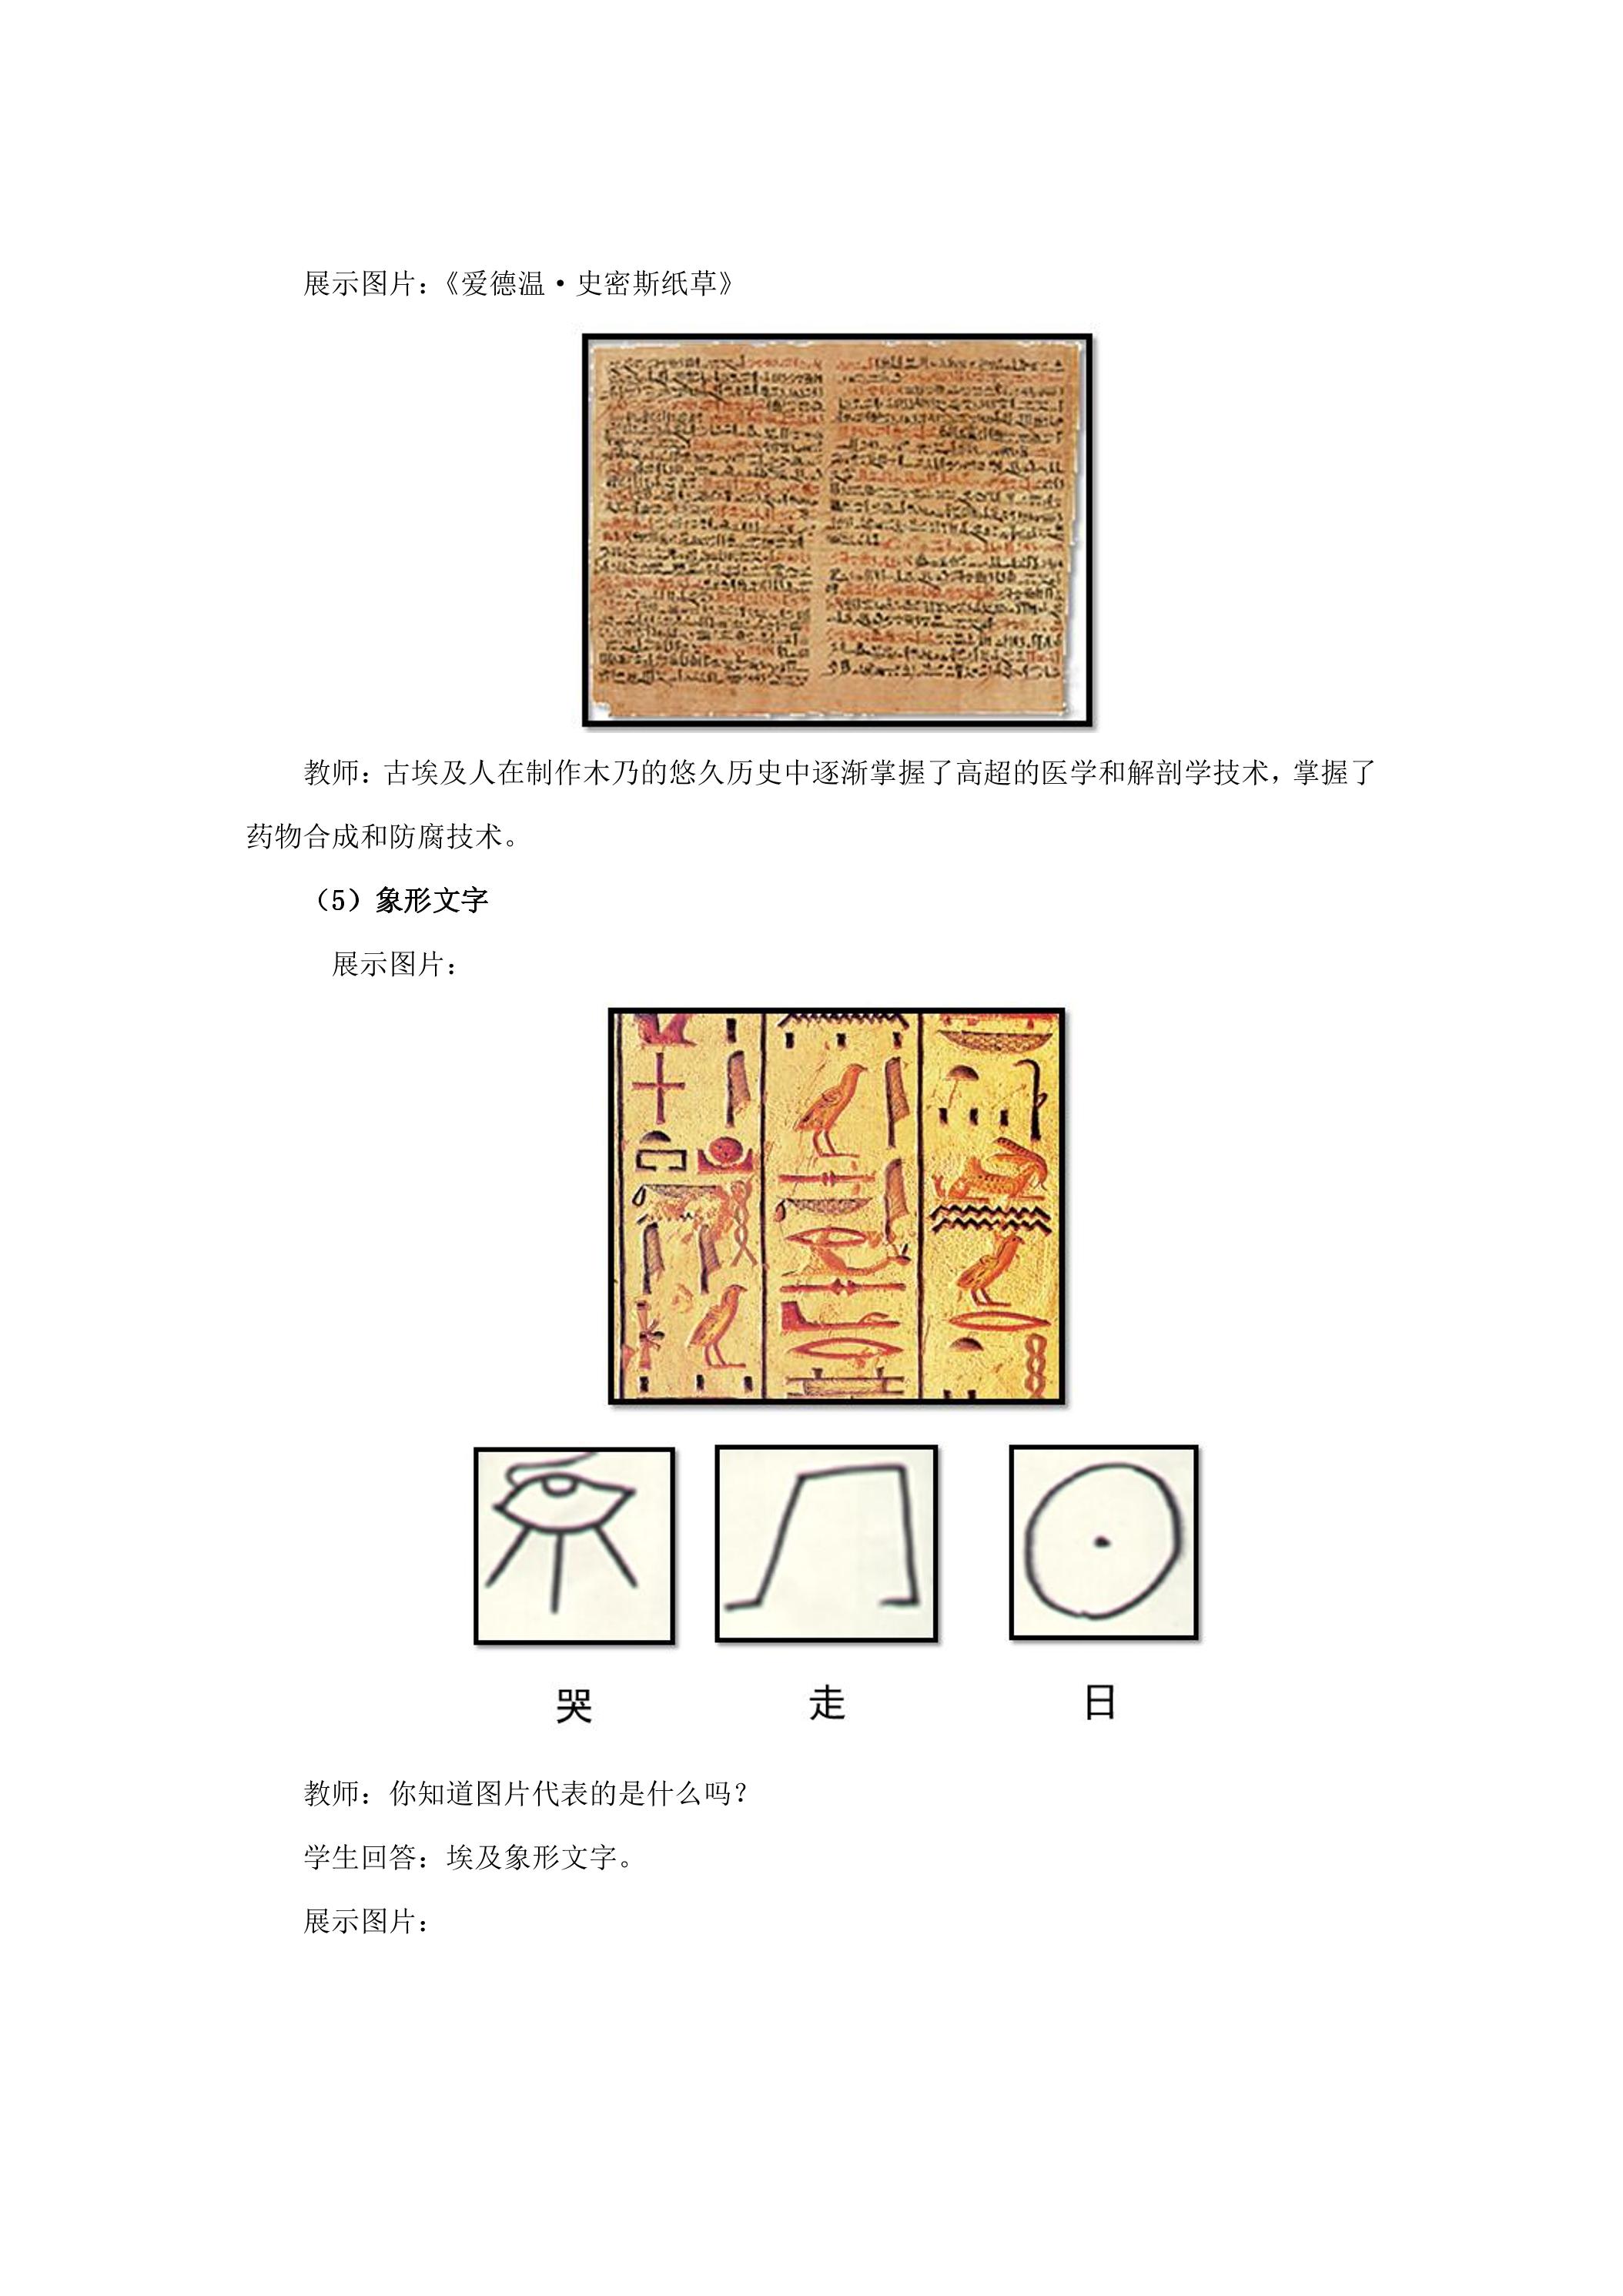 展示图片：《爱德温·史密斯纸草》
教师：古埃及人在制作木乃的悠久历史中逐渐掌握了高超的医学和解剖学技术，掌握了
药物合成和防腐技术。
（5）象形文字
展示图片：
哭 走 日
教师：你知道图片代表的是什么吗？
学生回答：埃及象形文字。
展示图片：